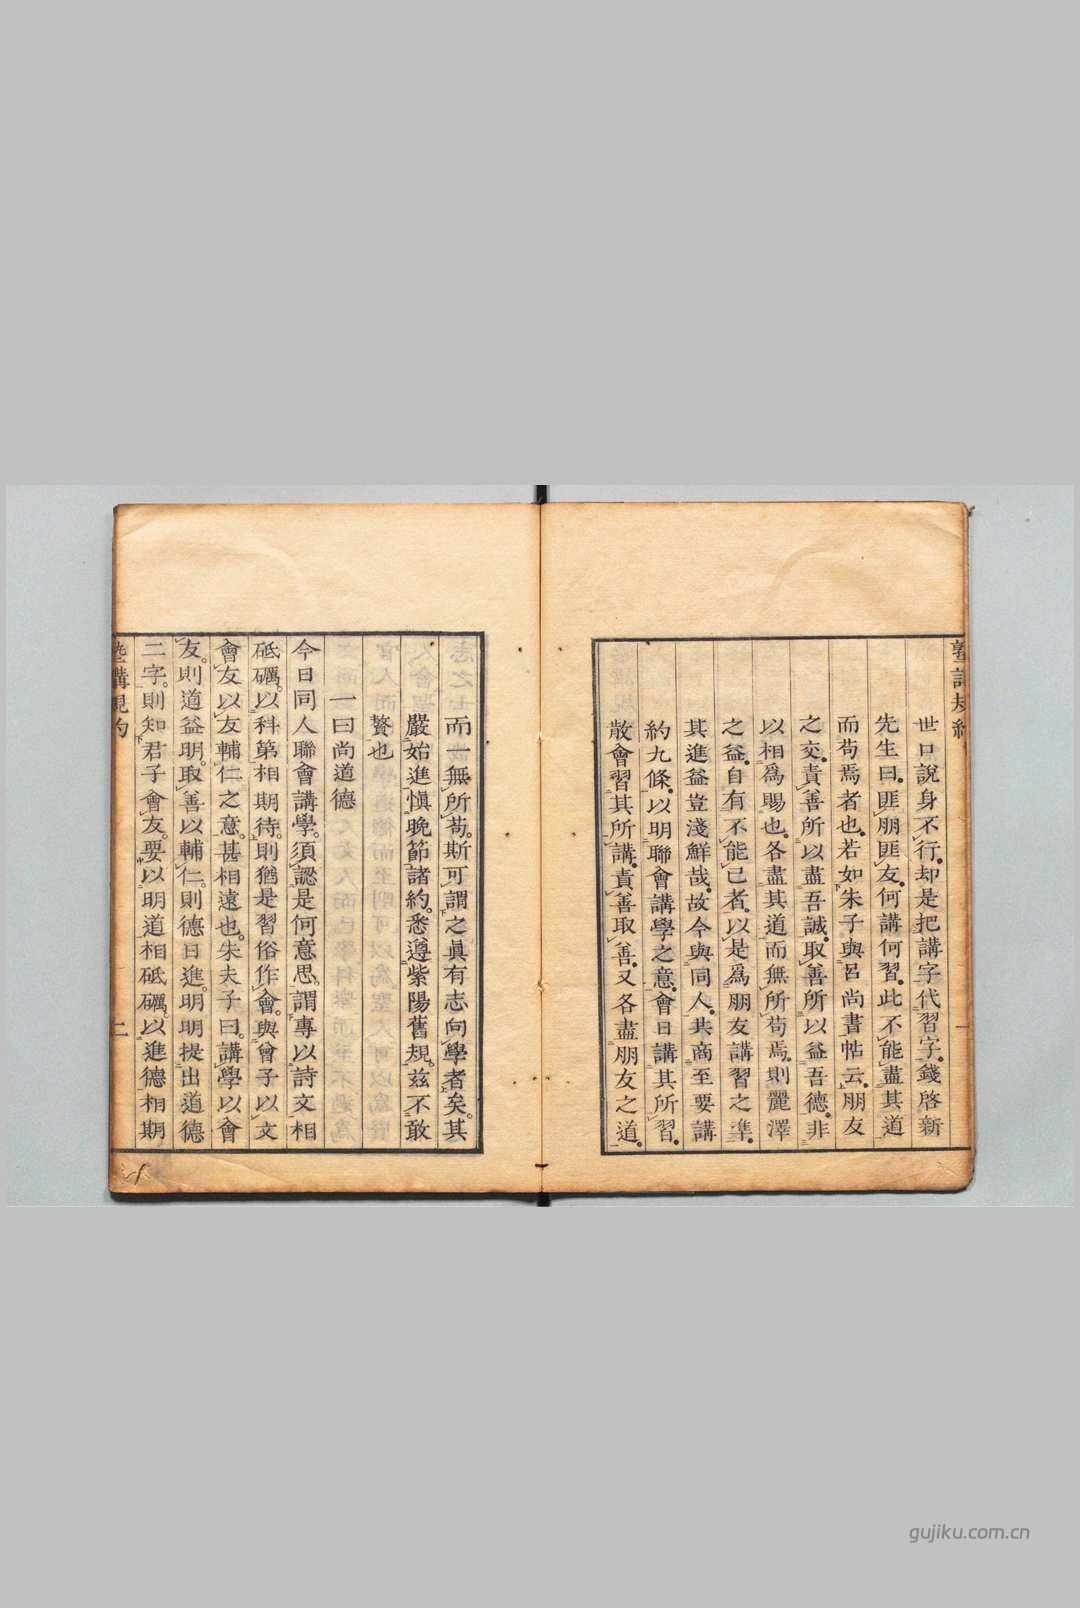 塾講規約
世口說身不行。却是把講字代習字。錢啓新
先生曰。匪朋匪友。何講何習。此不能盡其道
而苟焉者也。若如朱子與呂尚書帖云。朋友
之交。責善所以盡吾誠。取善所以益吾德。非
以相爲賜也。各盡其道而無所苟焉。則麗澤
之益。自有不能已者。以是爲朋友講習之準。
其進益豈淺鮮哉。故今與同人。共商至要講
約九條。以明聯會講學之意。會日講其所習。
散會習其所講。責善取善。又各盡朋友之道。
一
而一無所苟。斯可謂之眞有志向學者矣。其
嚴始進愼晩節諸約。悉遵紫陽舊規。茲不敢
贅也
一曰尚道德
今日同人聯會講學。須認是何意思。謂專以詩文相
砥礪。以科第相期待。則猶是習俗作會。與曾子以文
會友以友輔仁之意。甚相遠也。朱夫子曰。講學以會
友。則道益明。取善以輔仁。則德日進。明明提出道德
二字。則知君子會友。要以明道相砥礪。以進德相期
塾講規約
二
gujiku.com.cn